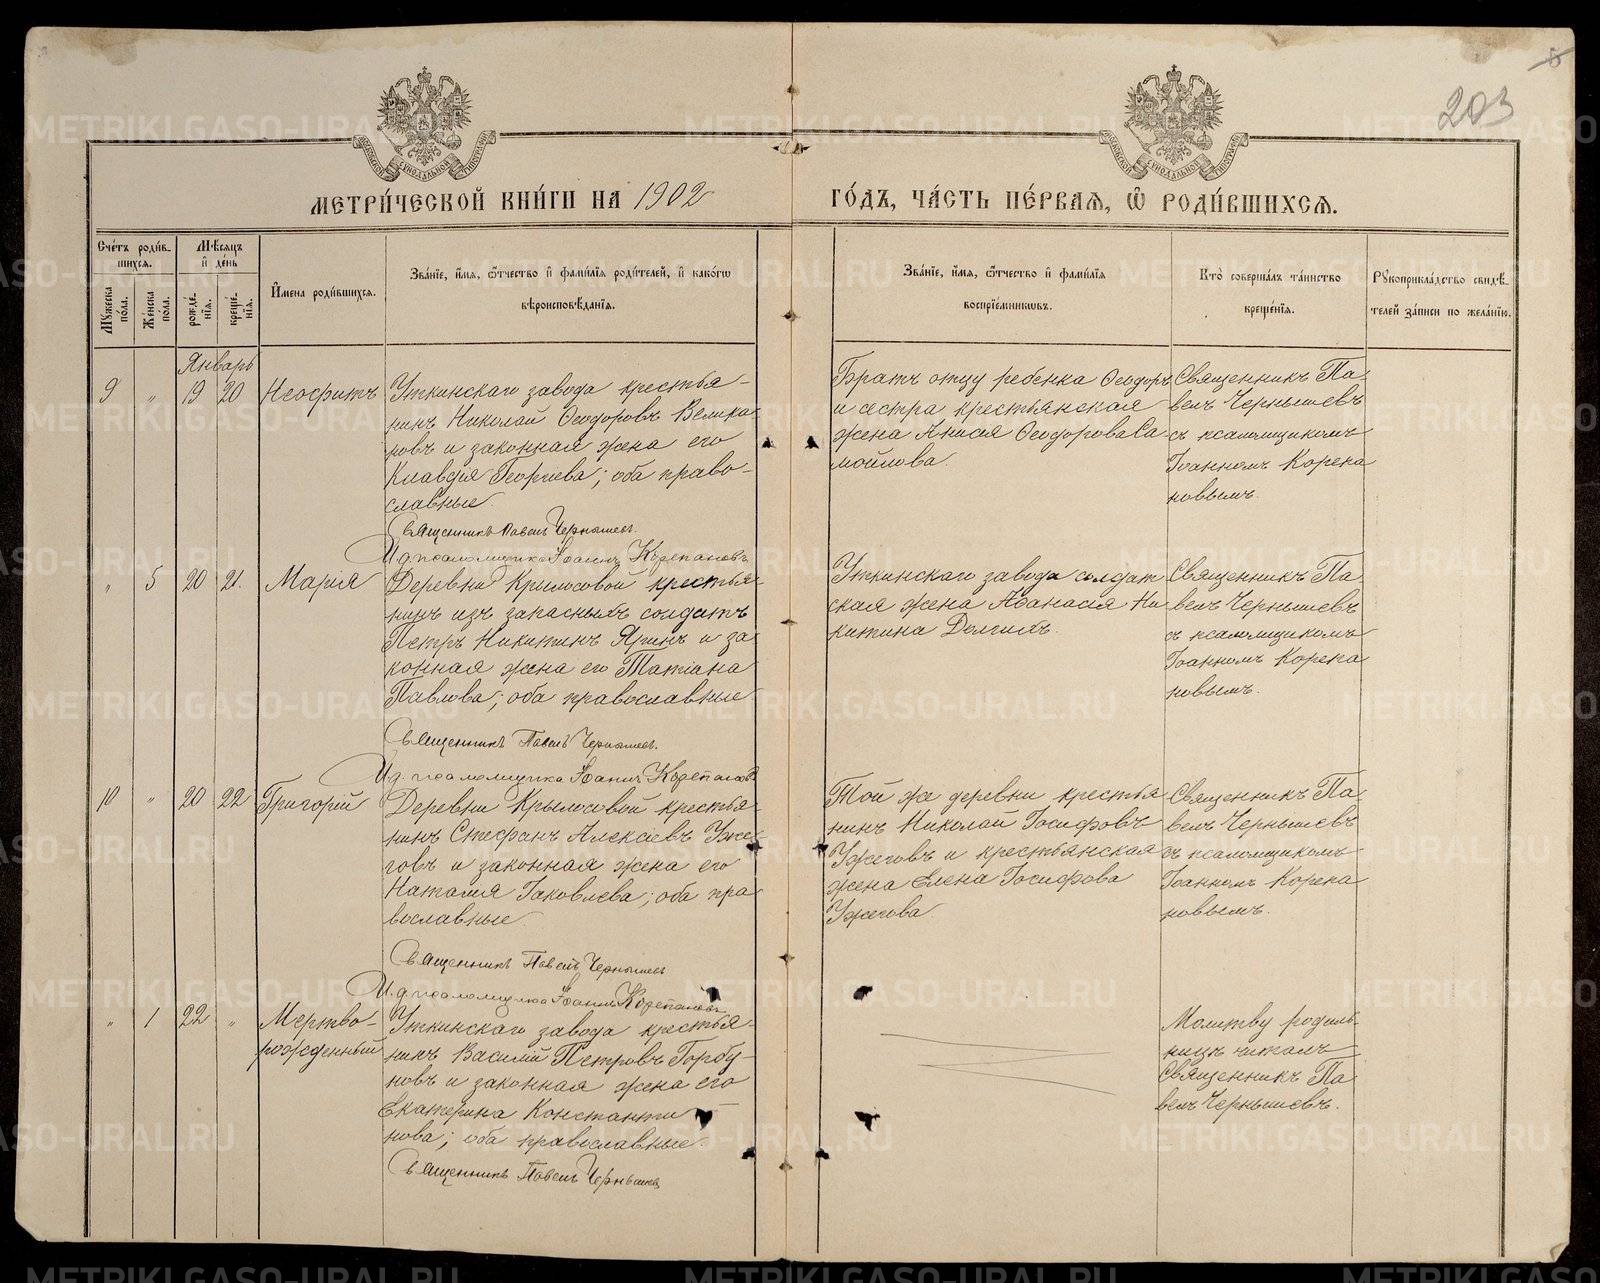 203
МЕТРИ́ЧЕСКОЙ КНИ́ГИ НА 1902 ГО́ДЪ, ЧА́СТЬ ПЕ́РВАѦ, Ѡ҆ РОДИ́ВШИХСѦ.
Сче́тъ роди́в-
шихсѧ.
Му́жеска по́ла.
Же́нска по́ла.
Мѣ́сѧцъ
и҆ де́нь
рожде́нїѧ.
креще́нїѧ.
И҆мена роди́вшихсѧ.
Зва́нїе, и҆́мѧ, ѻ҆́тчество и҆ фами́лїѧ роди́телей, и҆ како́гѡ
вѣроисповѣ́данїѧ.
Зва́нїе, и҆́мѧ, ѻ҆́тчество и҆ фами́лїѧ
воспрїе́мникѡвъ.
Кто̀ соверша́лъ та́инство
креще́нїѧ.
Рꙋкоприкла́дство свидѣ́-
телей за́писи по жела́нїю.
Январь
9 " 19 20 Неофитъ
Уткинскаго завода крестья-
нинъ Николай Ѳеодоровъ Велика-
новъ и законная жена его
Клавдія Георгіева; оба право-
славные.
Священникъ Павелъ Чернышевъ
И.д. псаломщика Іоаннъ Корепановъ
Братъ отцу ребенка Ѳеодоръ
и сестра крестьянская
жена Анисія Ѳеодорова Са-
мойлова.
Священникъ Па-
велъ Чернышевъ
съ псаломщикомъ
Іоанномъ Корепа
новымъ.
" 5 20 21. Марія
Деревни Крылосовой крестья-
нинъ изъ запасныхъ солдатъ
Петръ Никитинъ Яринъ и за
конная жена его Татіана
Павлова; оба православные
Священникъ Павелъ Чернышевъ.
И.д. псаломщика Іоаннъ Корепановъ
Уткинскаго завода солдат
ская жена Аѳанасія Ни
китина Долгихъ.
Священникъ Па
велъ Чернышевъ
съ псаломщикомъ
Іоанномъ Корепа
новымъ.
10 " 20 22 Григорій
Деревни Крылосовой крестья
нинъ Стефанъ Алексіевъ Уже
говъ и законная жена его
Наталія Іаковлева; оба пра
вославные
Священникъ Павелъ Чернышевъ
И.д. псаломщика Іоаннъ Корепановъ
Той же деревни крестья
нинъ Николай Іосифовъ
Ужеговъ и крестьянская
жена Елена Іосифова
Ужегова
Священникъ Па-
велъ Чернышевъ
съ псаломщикомъ
Іоанномъ Корепа
новымъ.
" 1 22 " Мертво-
рожденный
Уткинскаго завода крестья-
нинъ Василій Петровъ Горбу-
новъ и законная жена его
Екатерина Константи
нова; оба православные.
Священникъ Павелъ Чернышевъ
Молитву родиль-
ницѣ читалъ
Священникъ Па
велъ Чернышевъ.
METRIKI.GASO-URAL.RU